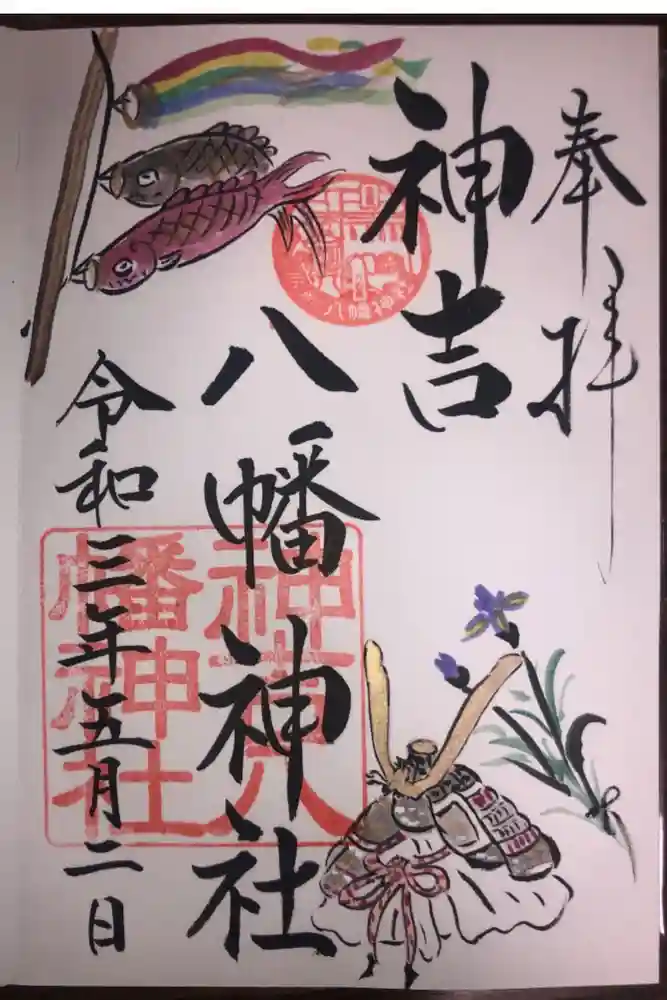 奉拝
神吉
八幡神社
令和三年五月二日
神吉八
幡神社
八幡神社